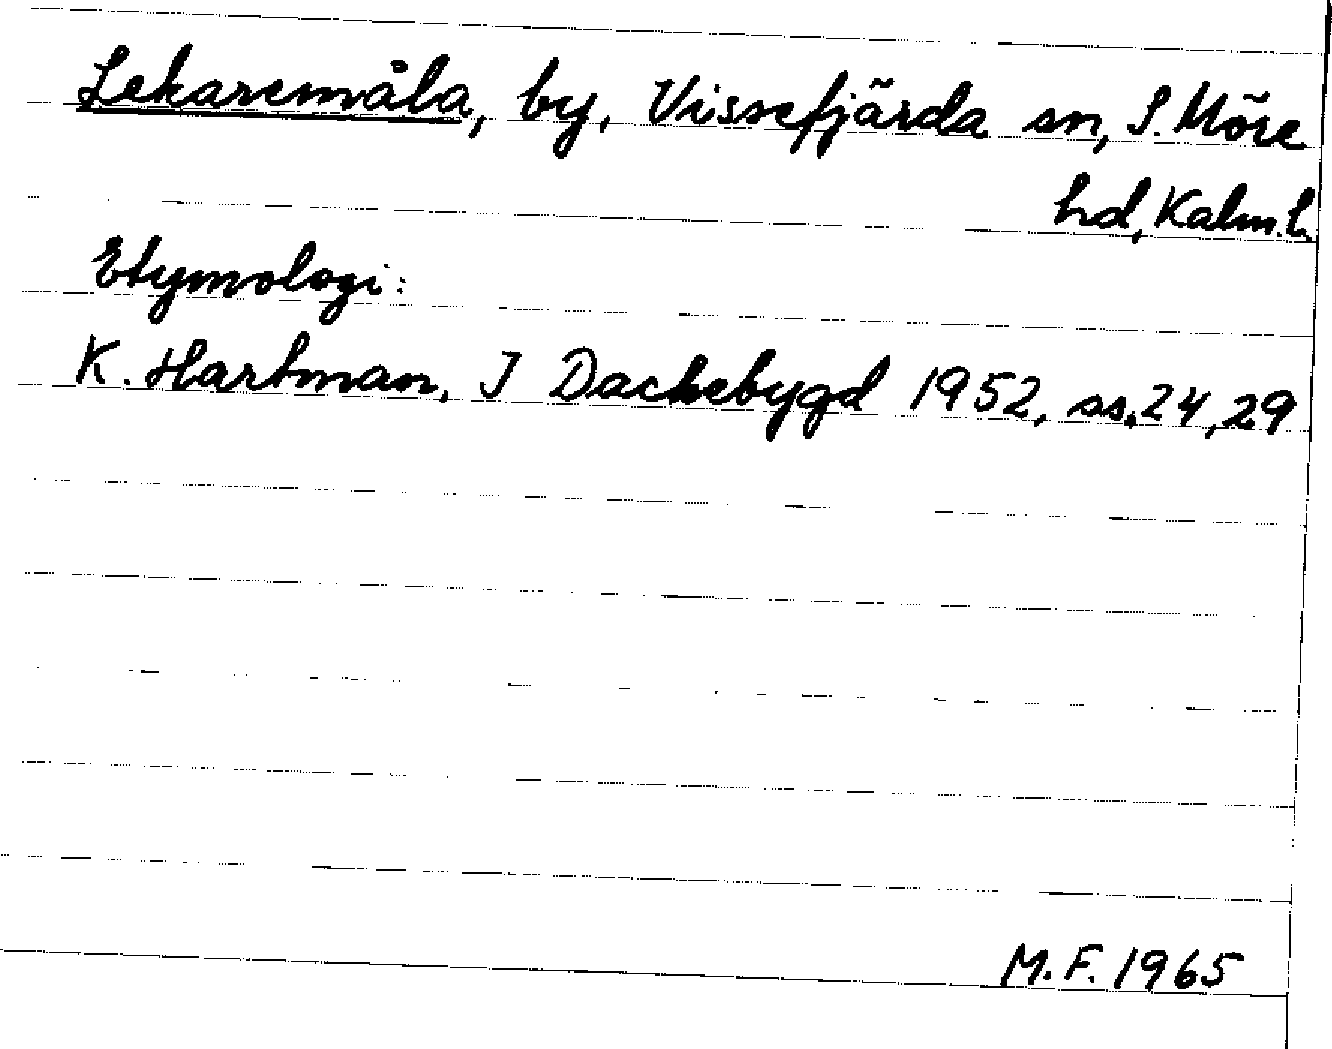 Lekaremåla, by, Vissefjärda sn, S. Möre
hd, Kalm. l.
Etymologi:
K. Hartman, I Dackebygd 1952, ss. 24, 29
M.F. 1965